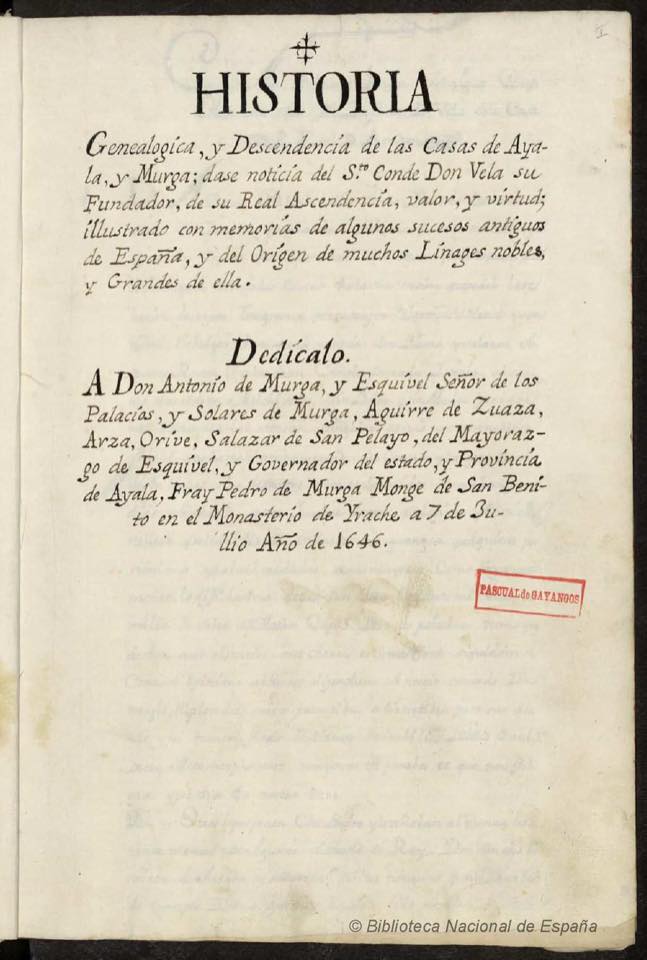 HISTORIA
Genealogica, y Descendencia de las Casas de Aya-
la, y Murga; dase noticia del S.to Conde Don Vela su
Fundador, de su Real Ascendencia, valor, y virtud;
illustrado con memorias de algunos sucesos antiguos
de España, y del Origen de muchos Linages nobles,
y Grandes de ella.
Dedicalo.
A Don Antonio de Murga, y Esquivel Señor de los
Palacios, y Solares de Murga, Aguirre de Zuaza,
Arza, Orive, Salazar de San Pelayo, del Mayoraz-
go de Esquivel, y Governador del estado, y Provincia
de Ayala, Fray Pedro de Murga Monge de San Beni-
to en el Monasterio de Yrache a 7 de Ju-
llio Año de 1646.
PASCUAL de GAYANGOS
© Biblioteca Nacional de España